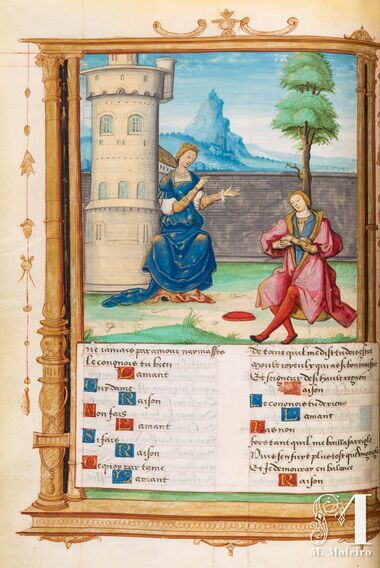 ne iamais par amour
Le cognois tu bien
Lamant
Ouy dame
Raison
Non fais
Lamant
Si fais
Raison
De quoy par tame
Lamant
De tant quil me dist tu dois estre
moult ioyeulx si bon maistre
Et seigneur de si hault
Raison
Le cognois tu de riens
Lamant
Las non
fors tant quil me bailla sa reigle
Puis senfuit plus tost
Et ie demouray en balance
Raison
M. Moleiro